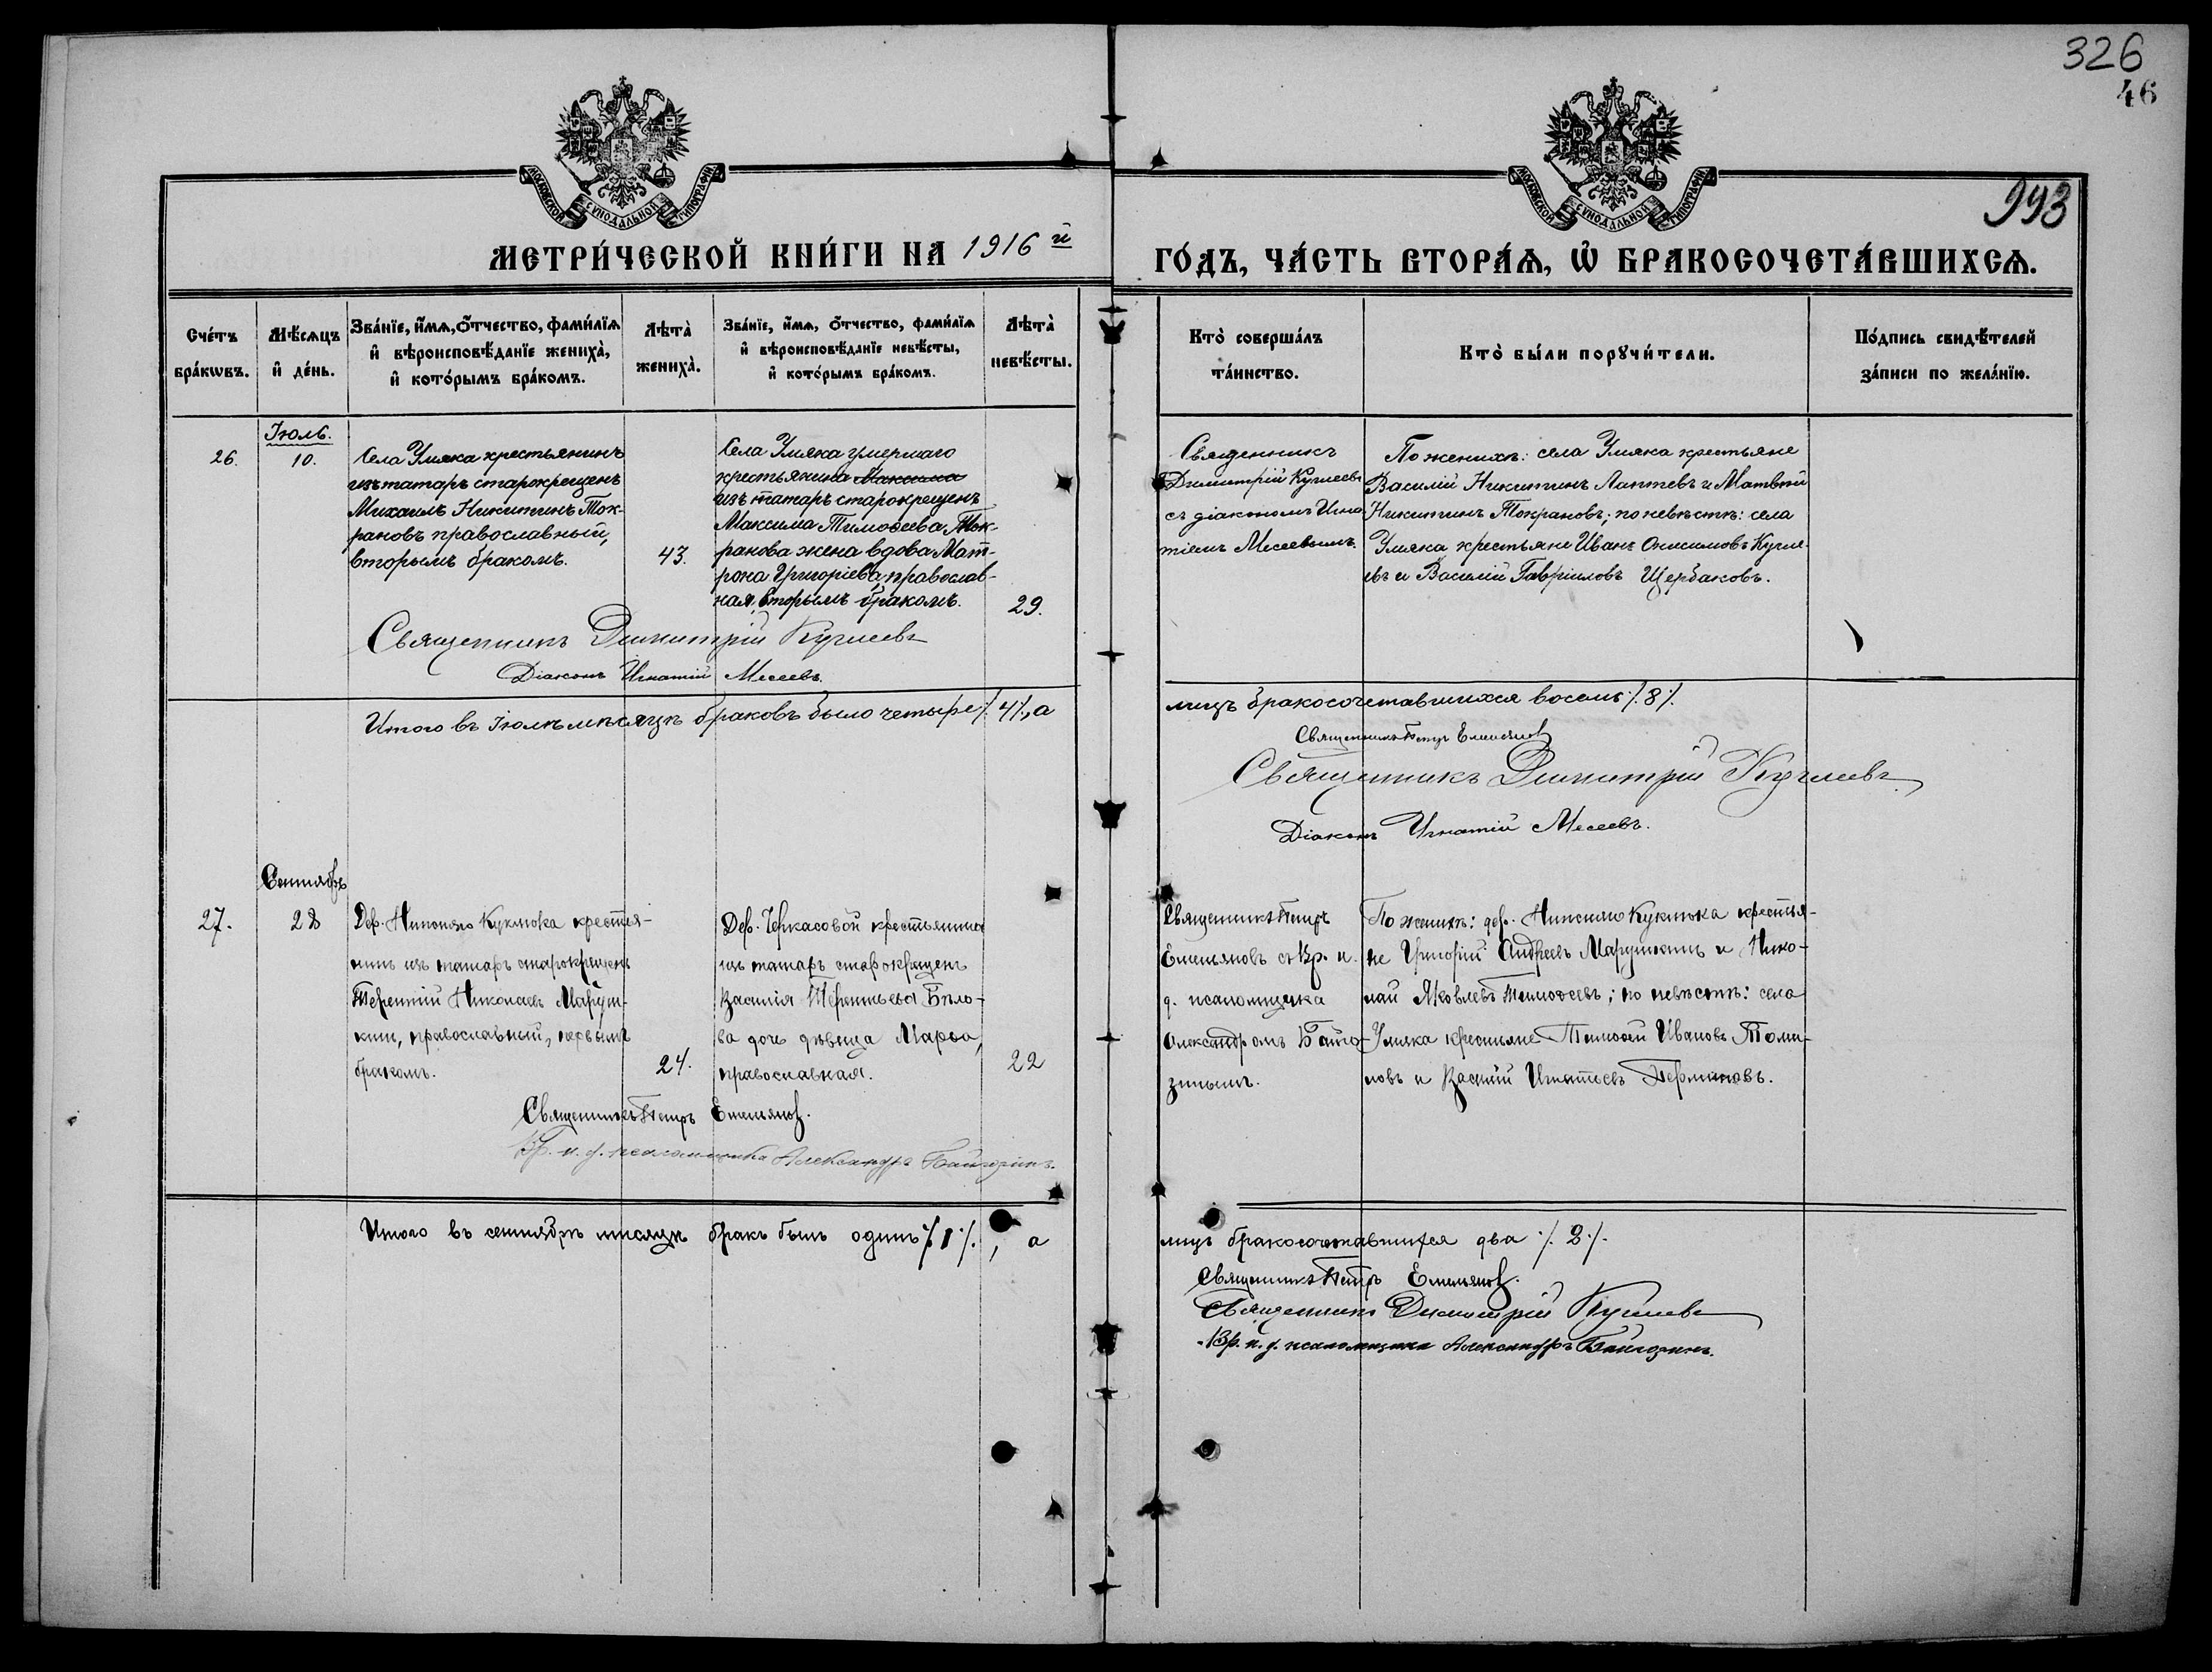 326
46
993
МОСКОВСКОЙ СѴНОДАЛЬНОЙ ТИПОГРАФІИ
МОСКОВСКОЙ СѴНОДАЛЬНОЙ ТИПОГРАФІИ
МЕТРИ́ЧЕСКОЙ КНИ́ГИ НА 1916 й
ГО́ДЪ, ЧА́СТЬ ВТОРА́Ѧ, Ѽ БРАКОСОЧЕТА́ВШИХСѦ.
Сче́тъ
бра́кѡвъ.
Мѣ́сѧцъ
и҆ де́нь.
Зва́нїе, и҆́мѧ, ѻ҆́тчество, фами́лїѧ
и҆ вѣроисповѣ́данїе жениха̀,
и҆ кото́рымъ бра́комъ.
Лѣта̀
жениха̀.
Зва́нїе, и҆́мѧ, ѻ҆́тчество, фами́лїѧ
и҆ вѣроисповѣ́данїе невѣ́сты,
и҆ кото́рымъ бра́комъ.
Лѣта̀
невѣ́сты.
Кто̀ соверша́лъ
та́инство.
Кто̀ бы́ли порꙋчи́тели.
По́дпись свидѣ́телей
за́писи по жела́нїю.
26.
Іюль.
10.
Села Умяка крестьянинъ
изъ татаръ старокрещенъ
Михаилъ Никитинъ Ток-
рановъ православный,
вторымъ бракомъ.
43.
Села Умяка умершаго
крестьянина Максима
изъ татаръ старокрещенъ
Максима Тимоѳеева Ток-
ранова жена вдова Мат-
рона Григоріева, православ-
ная, вторымъ бракомъ.
29.
Священникъ
Димитрій Кучлеевъ
съ діакономъ Игна-
тіемъ Месеевымъ.
По женихѣ: села Умяка крестьяне
Василій Никитинъ Лаптевъ и Матвѣй
Никитинъ Токрановъ; по невѣстѣ: села
Умяка крестьяне Иванъ Онисимовъ Кучле-
евъ и Василій Гавріиловъ Щербаковъ.
Священникъ Димитрій Кучлеевъ
Діаконъ Игнатій Месеевъ.
Итого въ Іюлѣ мѣсяцѣ браковъ было четыре ·/. 4 ·/., а
лицъ бракосочетавшихся восемь ·/. 8 ·/.
Священникъ Петръ Емельяновъ
Священникъ Димитрій Кучлеевъ
Діаконъ Игнатій Месеевъ.
Сентябрь
27.
28
Дер. Нижняго Кукмока крестья-
нинъ изъ татаръ старокрещенъ
Терентій Николаевъ Маруш-
кинъ, православный, первымъ
бракомъ.
24.
Дер. Черкасовой крестьянина
изъ татаръ старокрещенъ
Василія Терентьева Бѣло-
ва дочь дѣвица Марѳа,
православная.
22
Священникъ Петръ
Емельяновъ съ Вр. и.
д. псаломщика
Александромъ Байго-
зинымъ.
По женихѣ: дер. Нижняго Кукмока крестья-
не Григорій Андреевъ Марушкинъ и Нико-
лай Яковлевъ Тимоѳеевъ; по невѣстѣ: села
Умяка крестьяне Тимоѳей Ивановъ Томи-
ловъ и Василій Игнатьевъ Перминовъ.
Священникъ Петръ Емельяновъ.
Вр. и. д. псаломщика Александръ Байгозинъ.
Итого въ сентябрѣ мѣсяцѣ бракъ былъ одинъ ·/. 1 ·/., а
лицъ бракосочетавшихся два ·/. 2 ·/.
Священникъ Петръ Емельяновъ.
Священникъ Димитрій Кучлеевъ
Вр. и. д. псаломщика Александръ Байгозинъ.